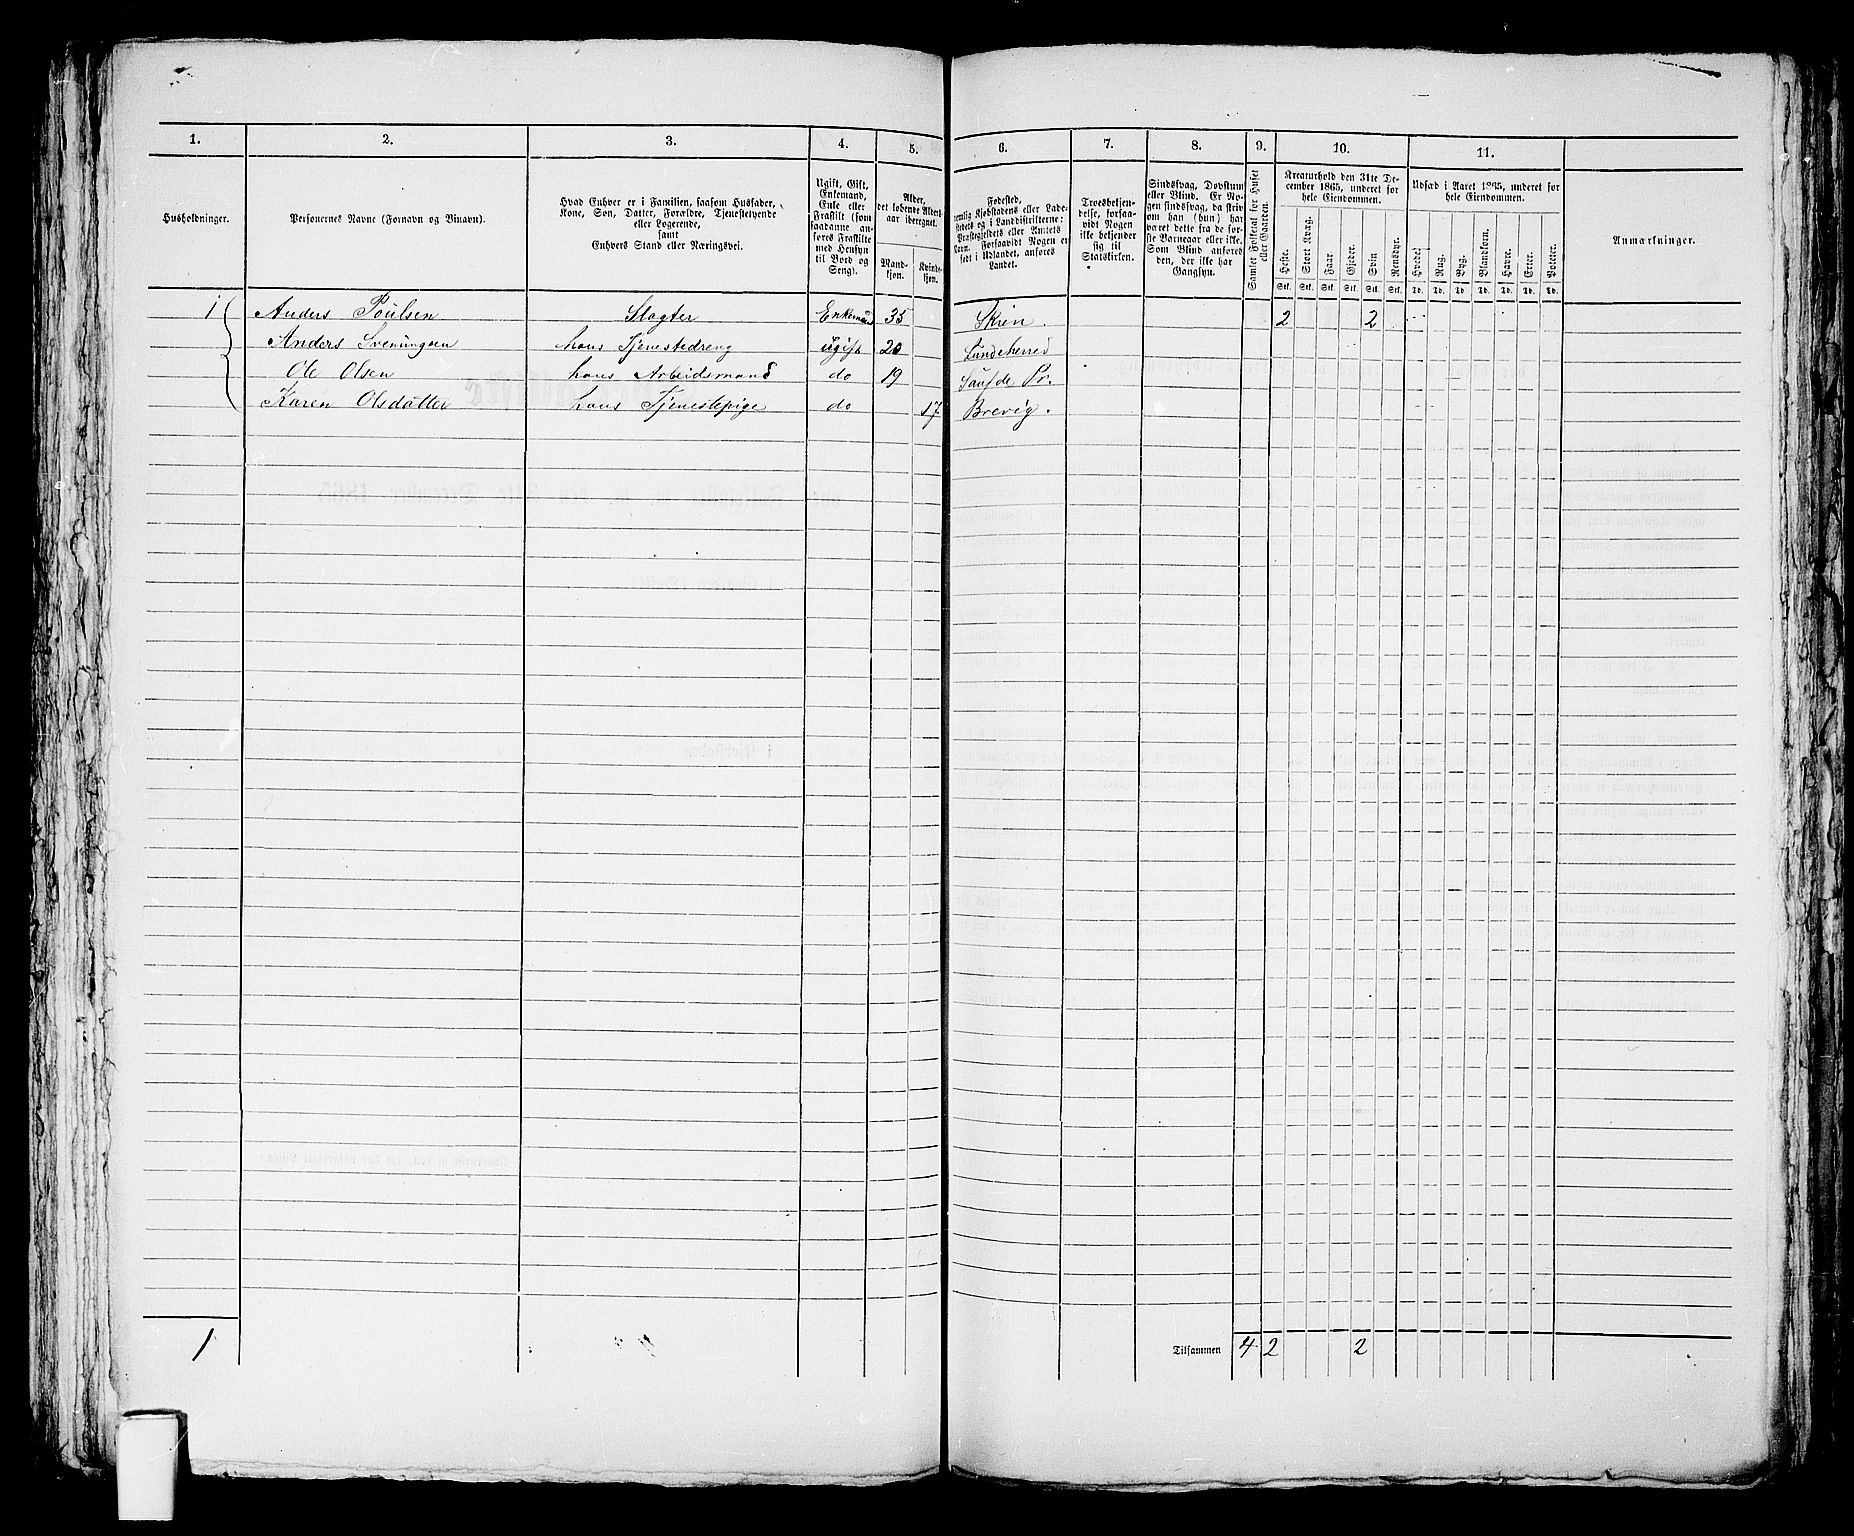 1. 2. 3. 4. 5. 6. 7. 8. 9. 10. 11.
Husholdninger.
Personernes Navne (Fornavn og Binavn).
Hvad Enhver er i Familien, saasom Husfader,
Kone, Søn, Datter, Forældre, Tjenestetyende
eller Logerende,
samt
Enhvers Stand eller Næringsvei.
Ugift, Gift,
Enkemand,
Enke eller
Fraskilt (som
saadanne an-
føres Fraskilte
med Hensyn
til Bord og
Seng).
Alder,
det løbende Alders-
aar iberegnet.
Mand-
kjøn.
Kvinde-
kjøn.
Fødested,
nemlig Kjøbstadens eller Lade-
stedets og i Landdistrikterne:
Præstegjeldets eller Amtets
Navn. Forsaavidt Nogen er
født i Udlandet, anføres
Landet.
Troesbekjen-
delse, forsaa-
vidt Nogen
ikke bekjender
sig til
Statskirken.
Sindssvag, Døvstum
eller Blind. Er No-
gen sindssvag, da skriv
om han (hun) har
været dette fra de før-
ste Barneaar eller ikke.
Som Blind anføres
den, der ikke har
Gangsyn.
Samlet Folketal for Huset
eller Gaarden.
Kreaturhold den 31te De-
cember 1865, underet for
hele Eiendommen.
Heste. Stort Kvæg. Faar. Gjeder. Svin. Rensdyr.
Stk. Stk. Stk. Stk. Stk. Stk.
Udsæd i Aaret 1865, underet for
hele Eiendommen.
Hvede. Rug. Byg. Blandkorn. Havre. Erter. Poteter.
Td. Td. Td. Td. Td. Td. Td.
Anmærkninger.
1 Anders Poulsen Slagter Enkemand 35 Skien. 2 2
Anders Sveningsen hans Tjenestedreng ugift 20 Lundeherred
Ole Olsen hans Arbeidsmand do 19 Saufde Pr.
Karen Olsdatter hans Tjenestepige do 17 Brevig.
1 Tilsammen 4 2 2